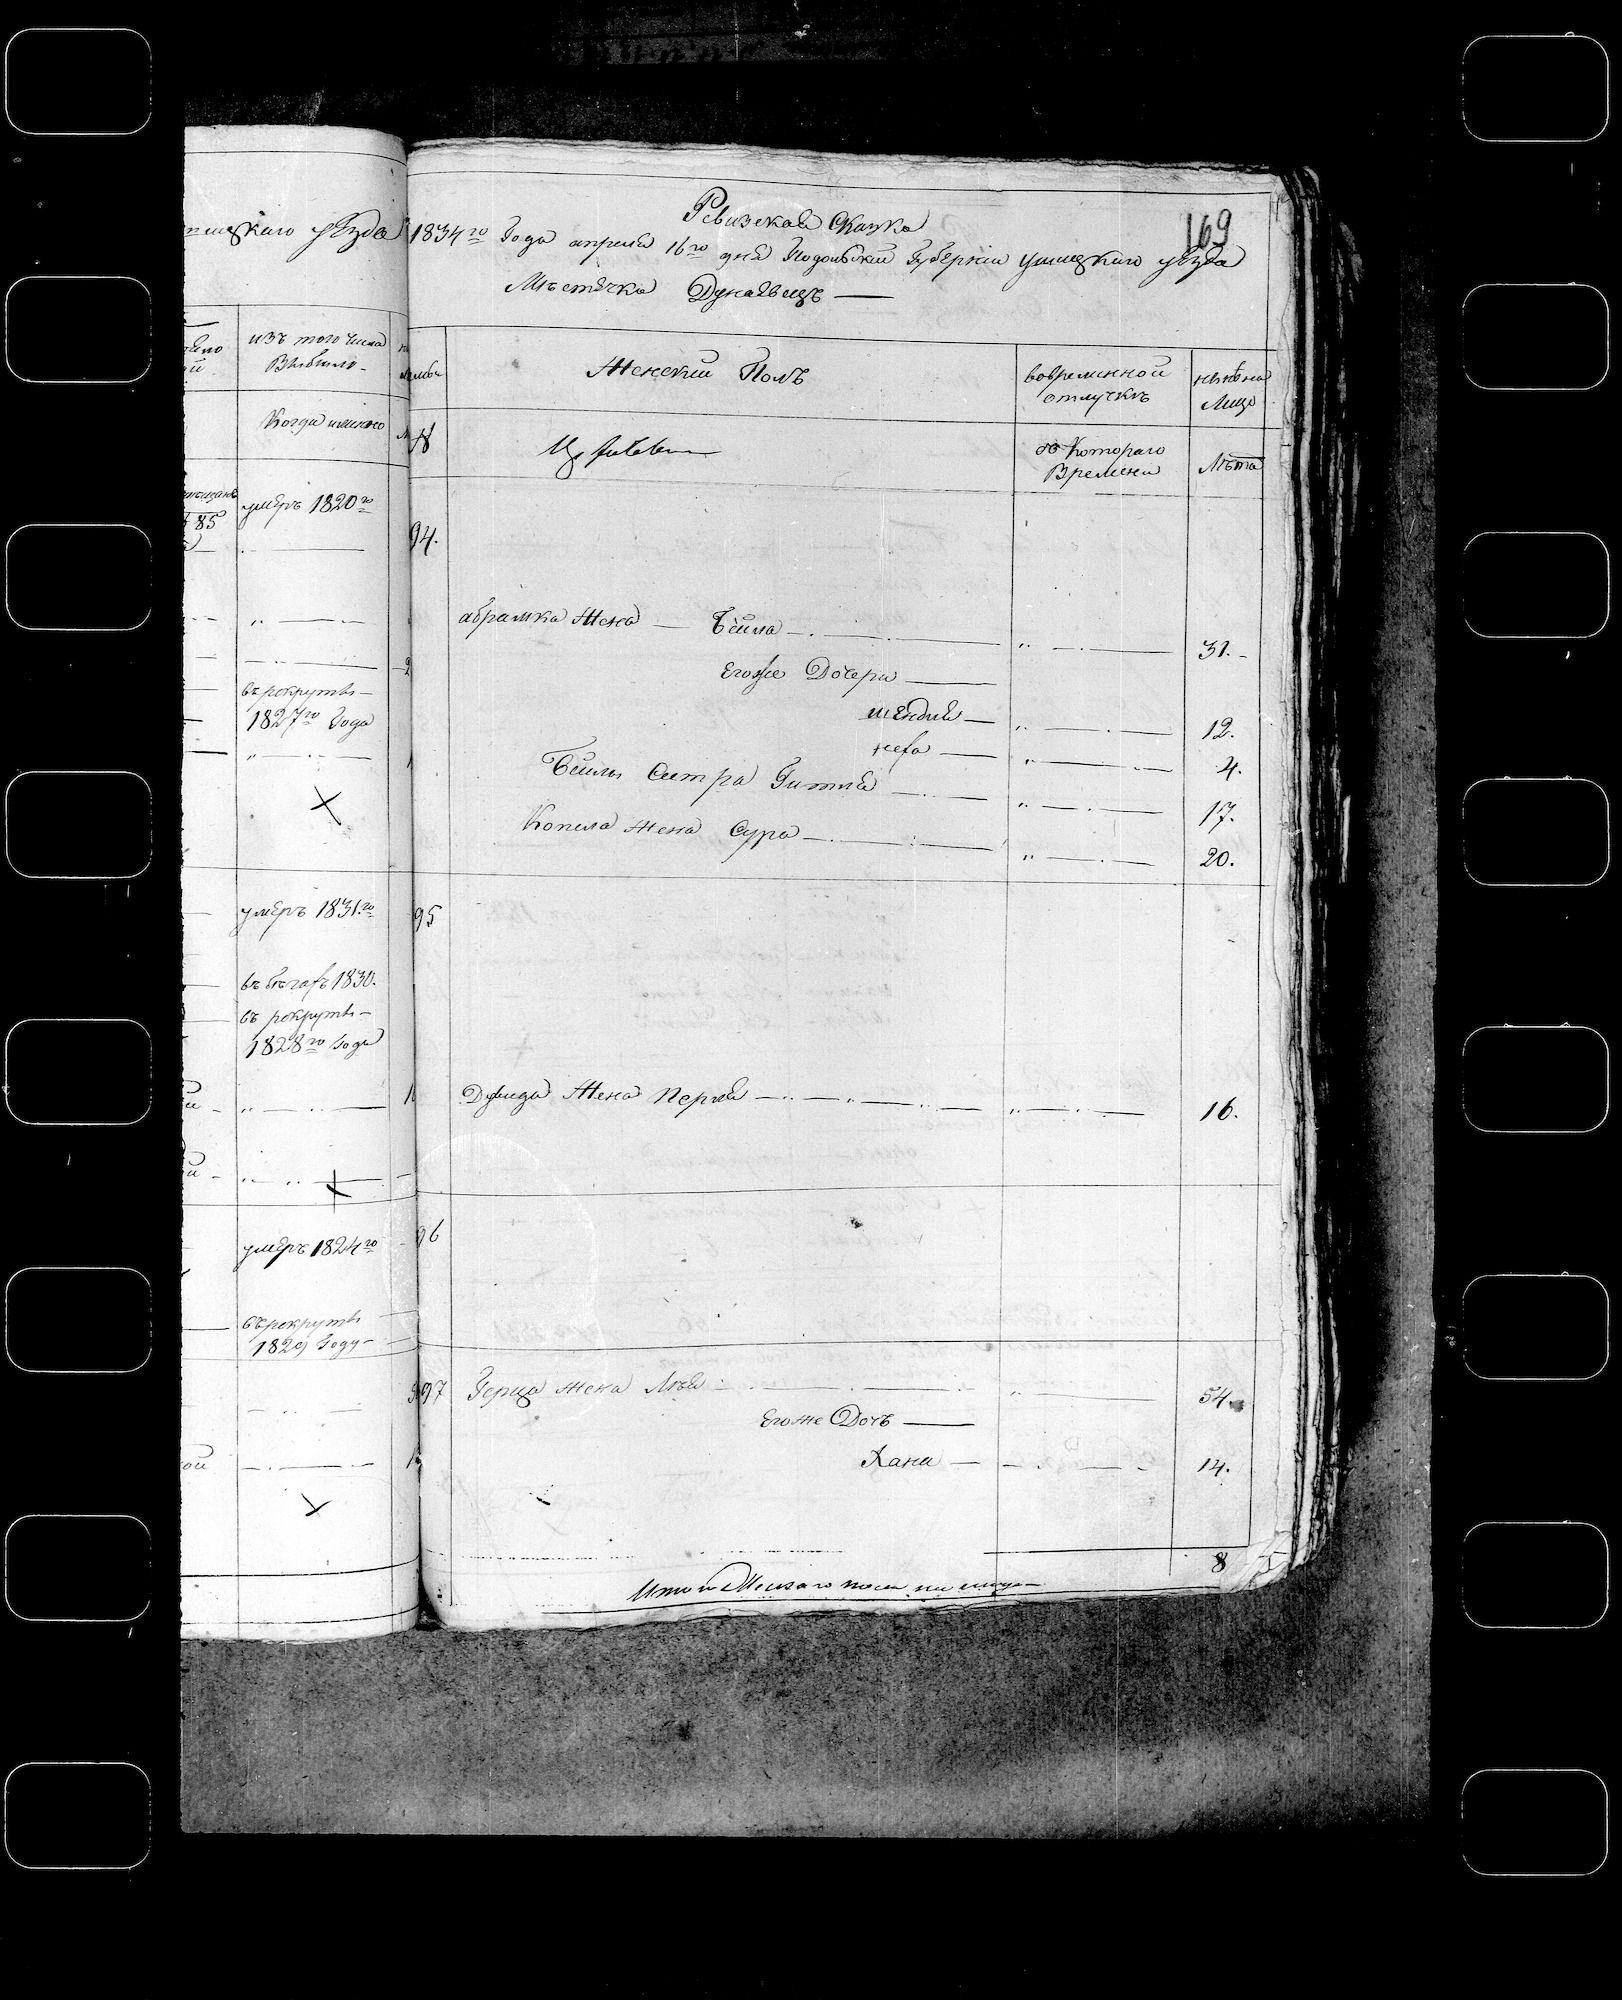 уѣзда
изъ того числа
выбыло
Когда имянно
85
умеръ 1820го
въ рекруты
1827го Года
умеръ 1831го
въ бѣгахъ 1830.
въ рекруты
1828го года
умеръ 1824го
въ рекруты
1829 Году
169
Ревизская Сказка
1834го Года апреля 16го дня Подольской Губернии Ушицкаго уѣзда
Мѣстечка Дунаевецъ
Женский Полъ
вовременной отлучкѣ
нынѣ на Лицо
съ Котораго Времени
Лѣта
94.
абрамка Жена Бейла 31.
Егоже Дочери
шендля 12.
4.
Бейлы Сестра Гитля 17.
Копела жена Сура 20.
95
Жена Перля 16.
96
97 Герца жена Лѣя 54.
Егоже Дочь
Хана 14.
Итого женскаго пола на лицо 8